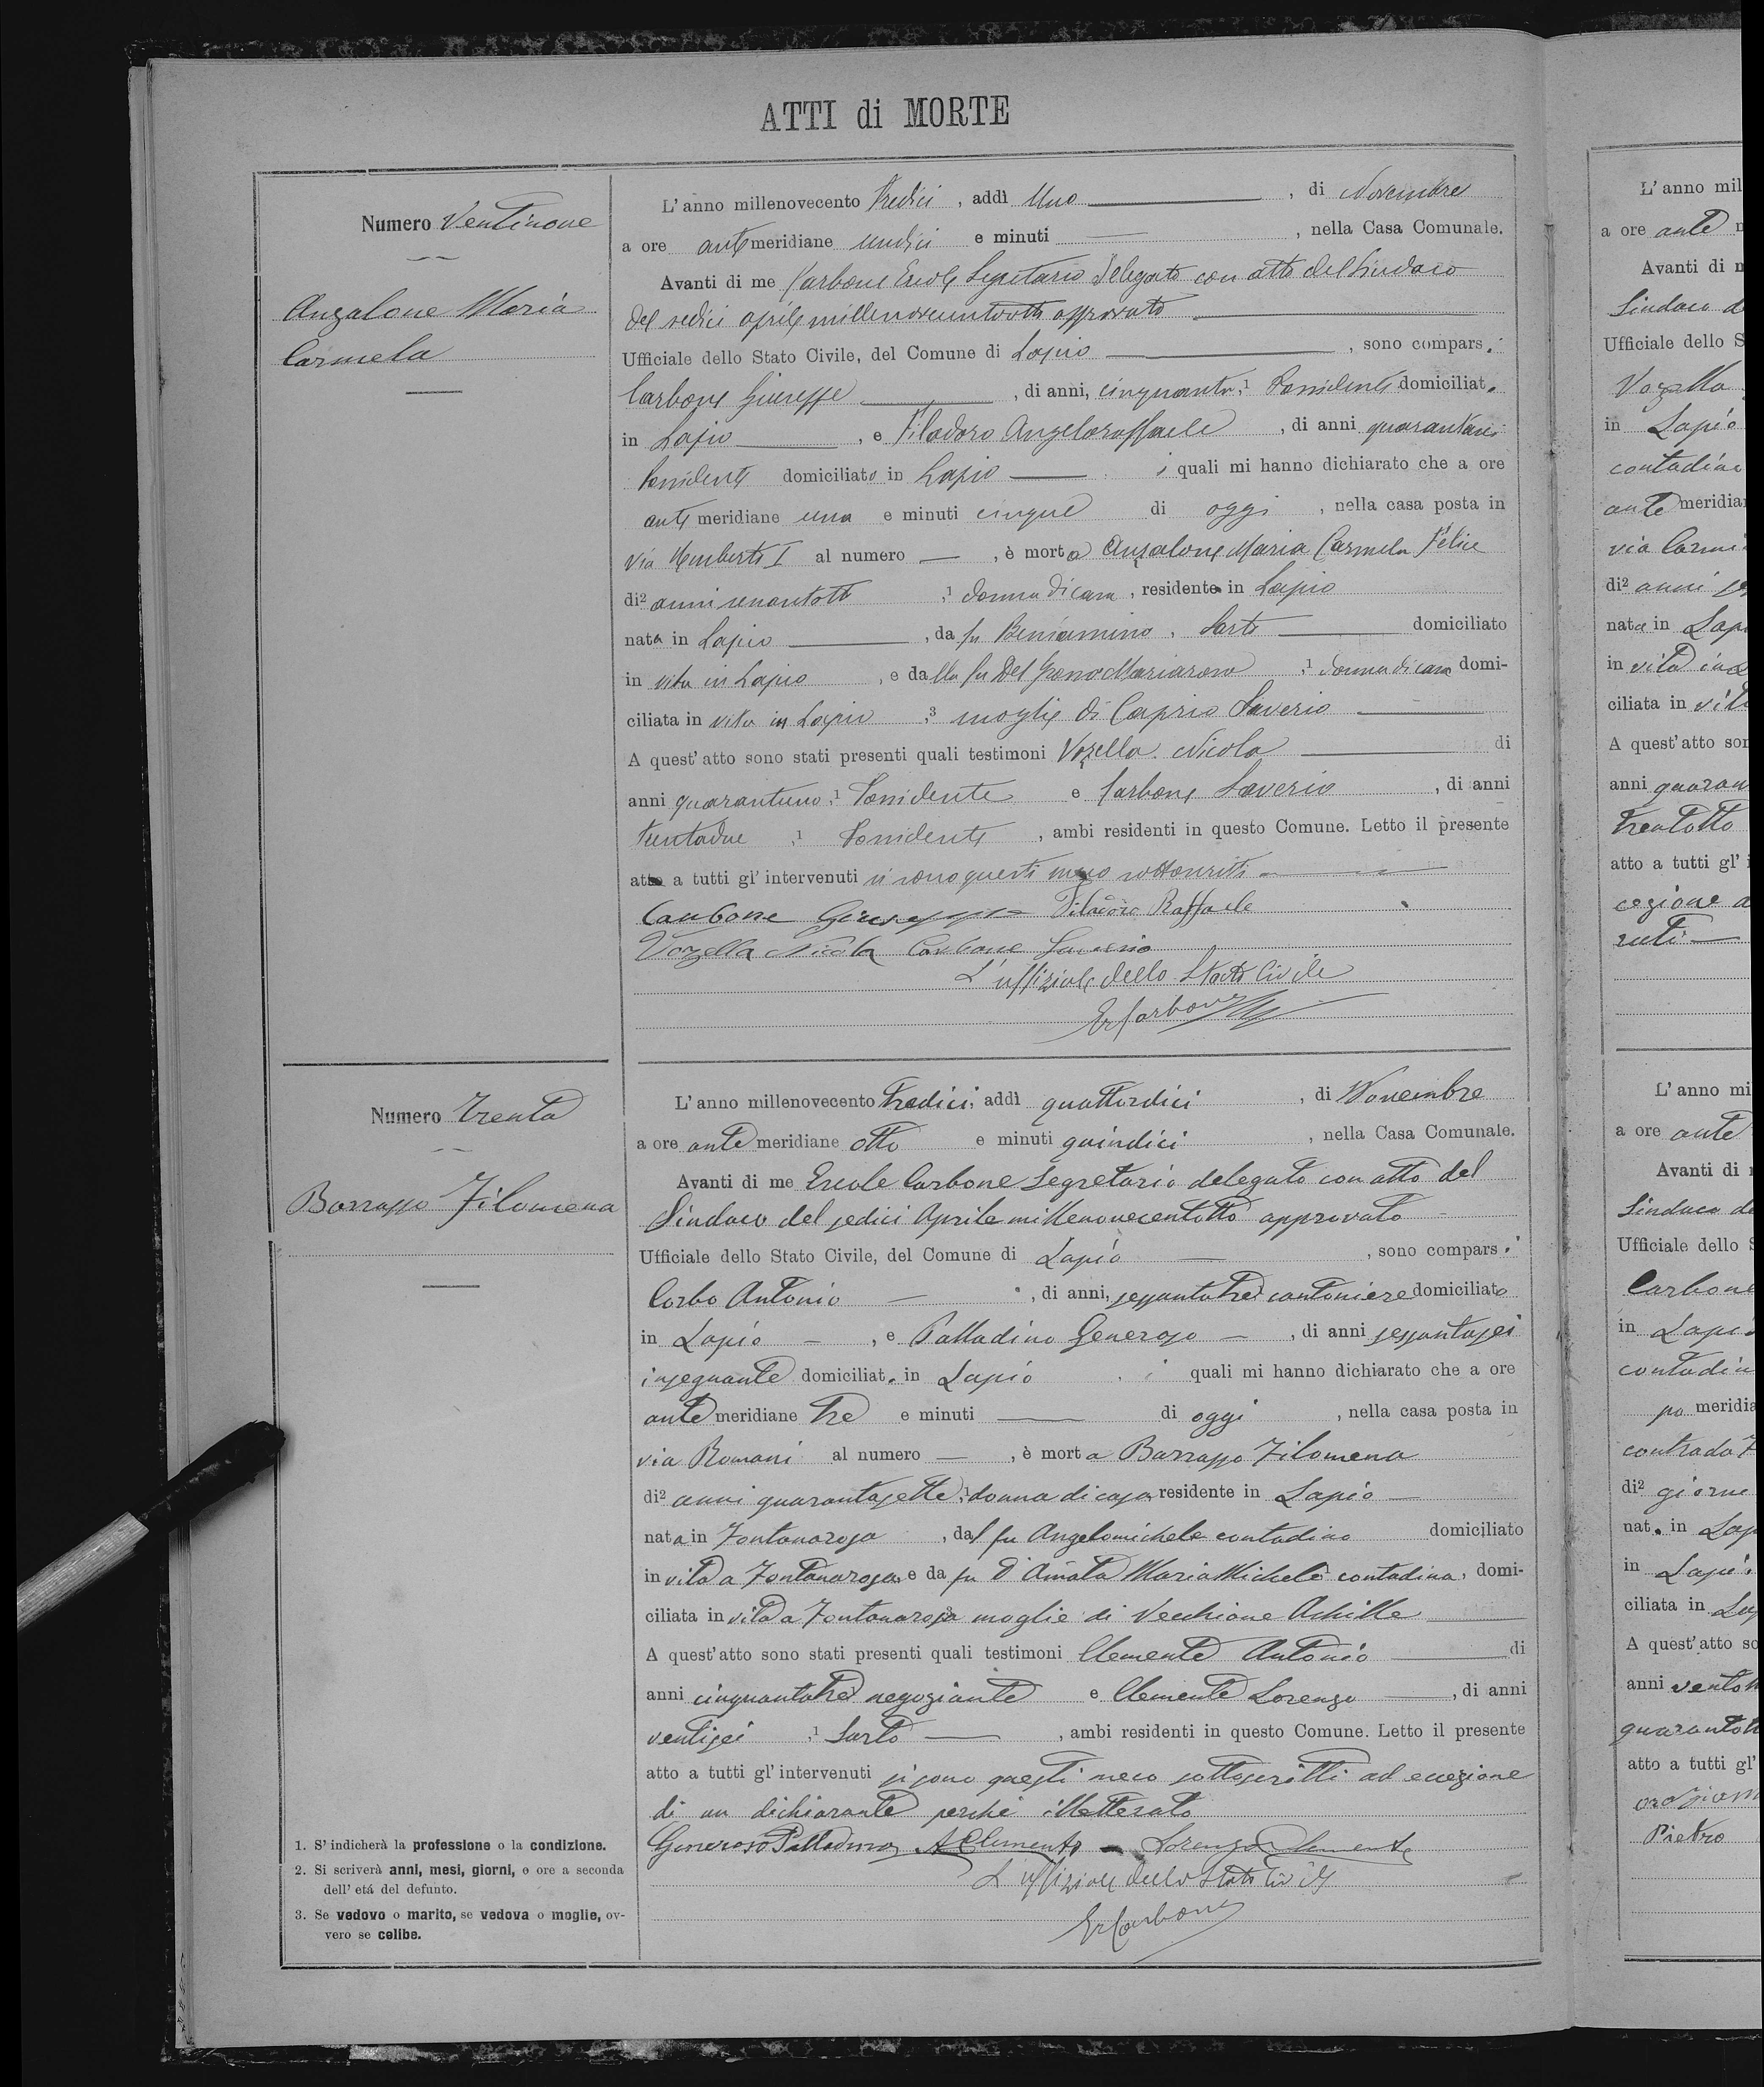 ATTI di MORTE
Numero Ventinove
Anzalone Maria
Carmela
L'anno millenovecento tredici, addì Uno, di Novembre
a ore antemeridiane undici e minuti —, nella Casa Comunale.
Avanti di me Carbone Ercole Segretario Delegato con atto del Sindaco
del sedici aprile millenovecentootto approvato
Ufficiale dello Stato Civile, del Comune di Lapio, sono comparsi
Carbone Giuseppe, di anni, cinquanta,1 Possidente domiciliat.
in Lapio, e Filadoro Angeloraffaele, di anni
Possidente domiciliato in Lapio — i quali mi hanno dichiarato che a ore
antemeridiane una e minuti cinque di oggi, nella casa posta in
via Umberto I al numero —, è morta Anzalone Maria Carmela Felice
di2 anni,1 donna di casa, residente in Lapio
nata in Lapio, da fu Beniamino, Sarto domiciliato
in vita in Lapio, e dalla fu Del Grosso Mariarosa,1 donna di casa domi-
ciliata in vita in Lapio,3 moglie di Caprio Saverio
A quest'atto sono stati presenti quali testimoni Vozella Nicola di
anni quarantuno,1 Possidente e Carbone Saverio, di anni
trentadue,1 Possidente, ambi residenti in questo Comune. Letto il presente
atto a tutti gl'intervenuti si sono questi meco sottoscritti
Carbone Giuseppe Filadoro Raffaele
Vozella Nicola Carbone Saverio
L'uffiziale dello Stato Civile
ErCarbone
Numero trenta
Barrasso Filomena
L'anno millenovecento tredici, addì quattordici, di Novembre
a ore antemeridiane otto e minuti quindici, nella Casa Comunale.
Avanti di me Ercole Carbone Segretario delegato con atto del
Sindaco del sedici Aprile millenovecentotto approvato
Ufficiale dello Stato Civile, del Comune di Lapio —, sono comparsi
Corbo Antonio —, di anni, sessantatre cantoniere domiciliato
in Lapio —, e Palladino Generoso —, di anni sessantasei
insegnante domiciliat. in Lapio i quali mi hanno dichiarato che a ore
antemeridiane tre e minuti — di oggi, nella casa posta in
via Romani al numero —, è morta Barrasso Filomena
di2 anni quarantasette,1 donna di casa, residente in Lapio —
nata in Fontanarosa, dal fu Angelomichele contadino domiciliato
in vita a Fontanarosa, e da fu D'Amata Maria Michele contadina, domi-
ciliata in vita a Fontanarosa3 moglie di Vecchione Achille
A quest'atto sono stati presenti quali testimoni Clemente Antonio — di
anni cinquantatre negoziante e Clemente Lorenzo —, di anni
ventisei,1 Sarto —, ambi residenti in questo Comune. Letto il presente
atto a tutti gl'intervenuti si sono questi meco sottoscritti ad eccezione
di un dichiarante perché illetterato
Generoso Palladino AClemente - Lorenzo Clemente
L'uffiziale dello Stato Civile
ErCarbone
1. S'indicherà la professione o la condizione.
2. Si scriverà anni, mesi, giorni, o ore a seconda
dell'etá del defunto.
3. Se vedovo o marito, se vedova o moglie, ov-
vero se celibe.
L'anno mil
a ore ante
Avanti di
Sindaco d
Ufficiale dello S
in Lapio
contadino
ante meridia
via
di2 anni
nata in Lap
in vita in
ciliata in
A quest'atto so
anni quaran
trentotto
atto a tutti gl'
L'anno mi
a ore ante
Avanti di
Sindaco de
Ufficiale dello
Carbone
in Lapi
contadin
po meridia
contrada
di2 giorni
nat. in Lap
in Lapi
ciliata in La
A quest'atto so
anni
atto a tutti gl'
Pietro